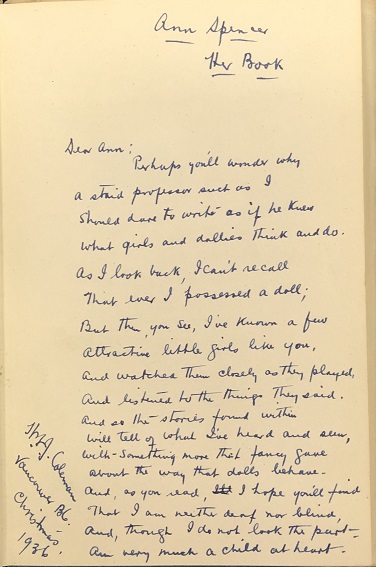 Ann Spencer
Her Book
Dear Ann:
Perhaps you'll wonder why
a staid professor such as I
Should dare to write as if he knew
what girls and dollies think and do.
As I look back, I can't recall
That ever I possessed a doll;
But then, you see, I've known a few
Attractive little girls like you,
And watched them closely as they played,
And listened to the things they said.
And so the stories found within
will tell of what I've heard and seen,
with something more that fancy gave
about the way that dolls behave.
And, as you read, I hope you'll find
That I am neither deaf nor blind,
And, though I do not look the part—
Am very much a child at heart.
H.J. Coleman
Vancouver B.C.
Christmas.
1936